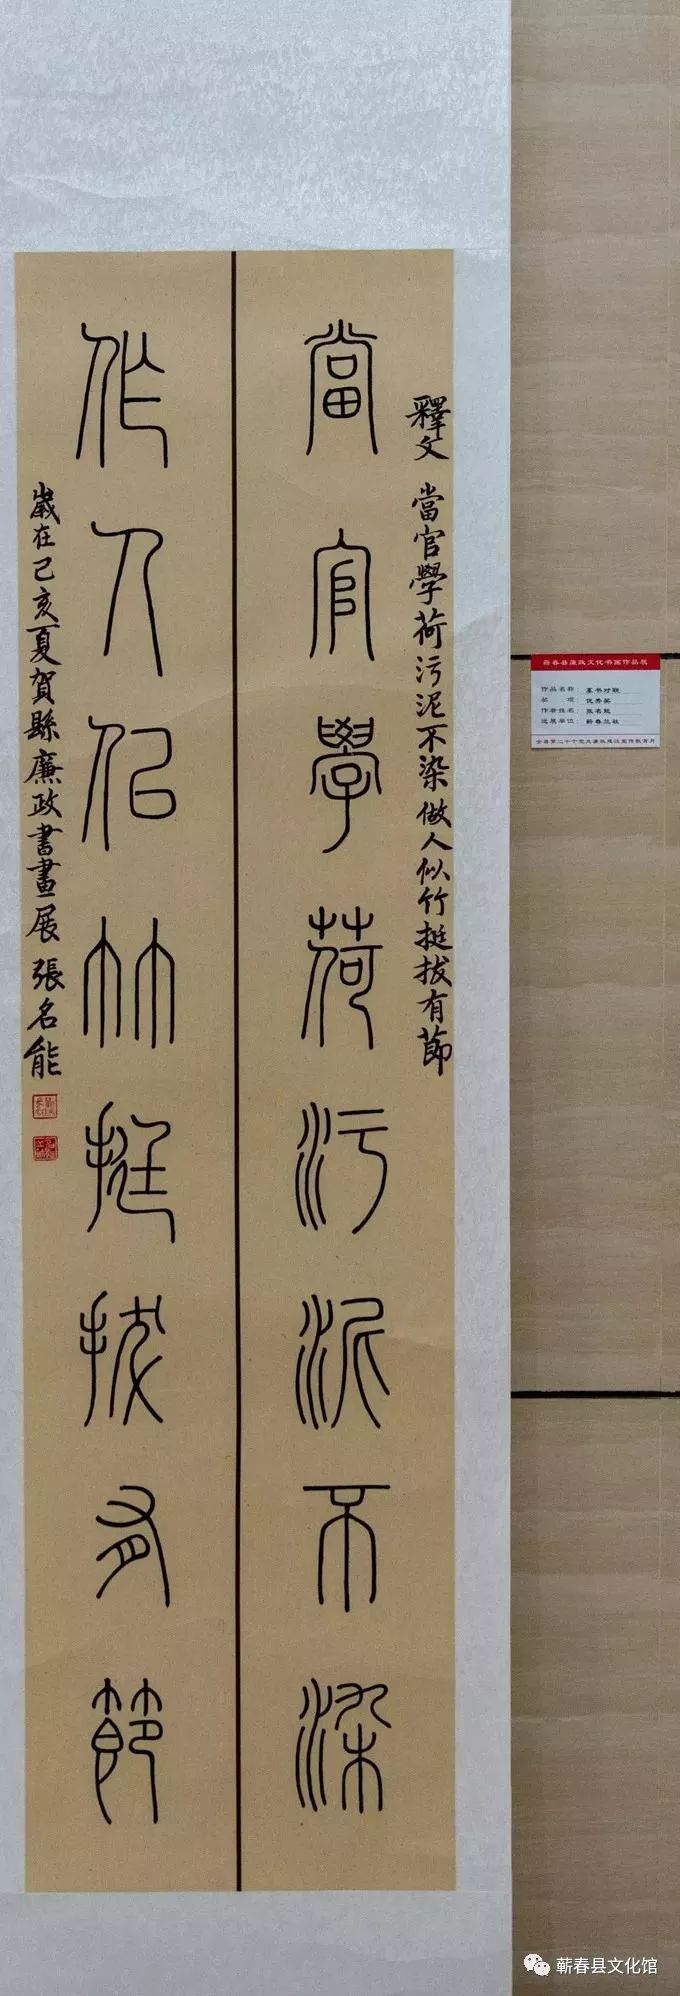 釋文 當官學荷污泥不染做人似竹挺拔有節
當官學荷污泥不染
作人似竹挺拔有節
歲在己亥夏賀縣廉政書畫展 張名能
蕲春县廉政文化书画作品展
作品名称：篆书对联
奖 项：优秀奖
作者姓名：张名能
全县第二十个党风廉政建设宣传教育月
蕲春县文化馆